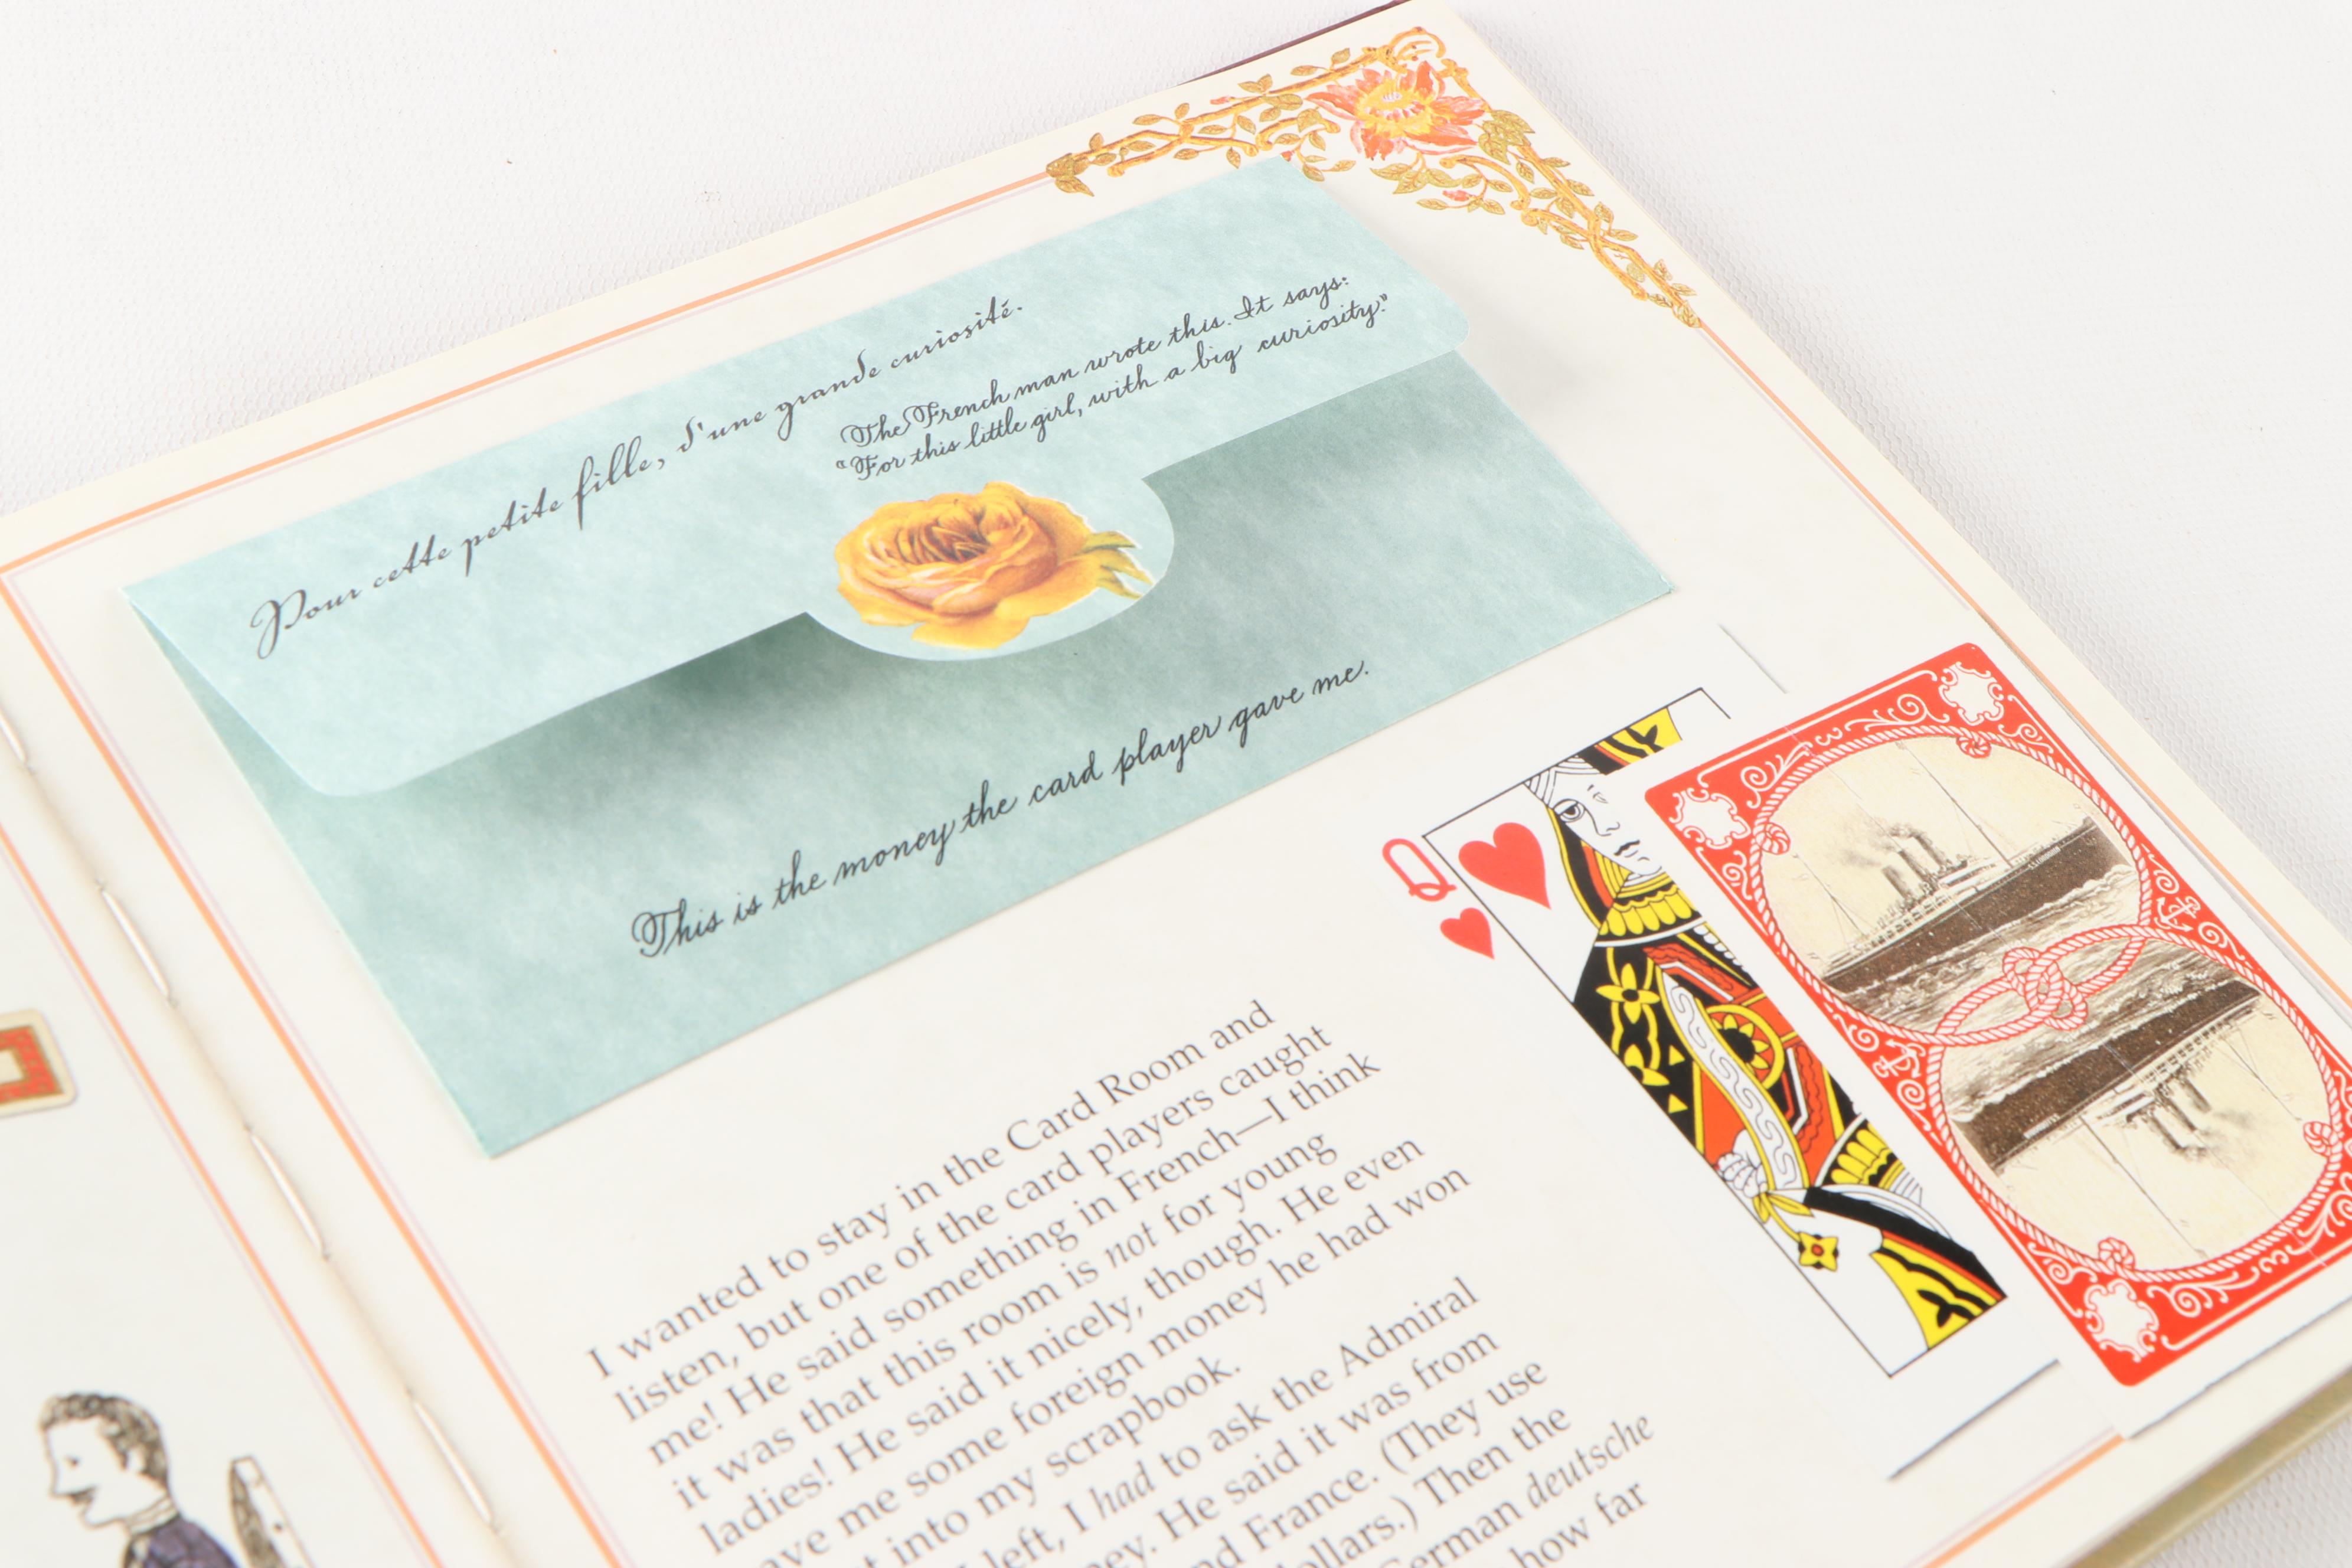 Pour cette petite fille, d'une grande curiosité.
The French man wrote this. It says:
"For this little girl, with a big curiosity."
This is the money the card player gave me.
Q
I wanted to stay in the Card Room and
listen, but one of the card players caught
me! He said something in French—I think
it was that this room is not for young
ladies! He said it nicely, though. He even
me some foreign money he had won
into my scrapbook.
left, I had to ask the Admiral
He said it was from
France. (They use
Then the
German deutsche
how far